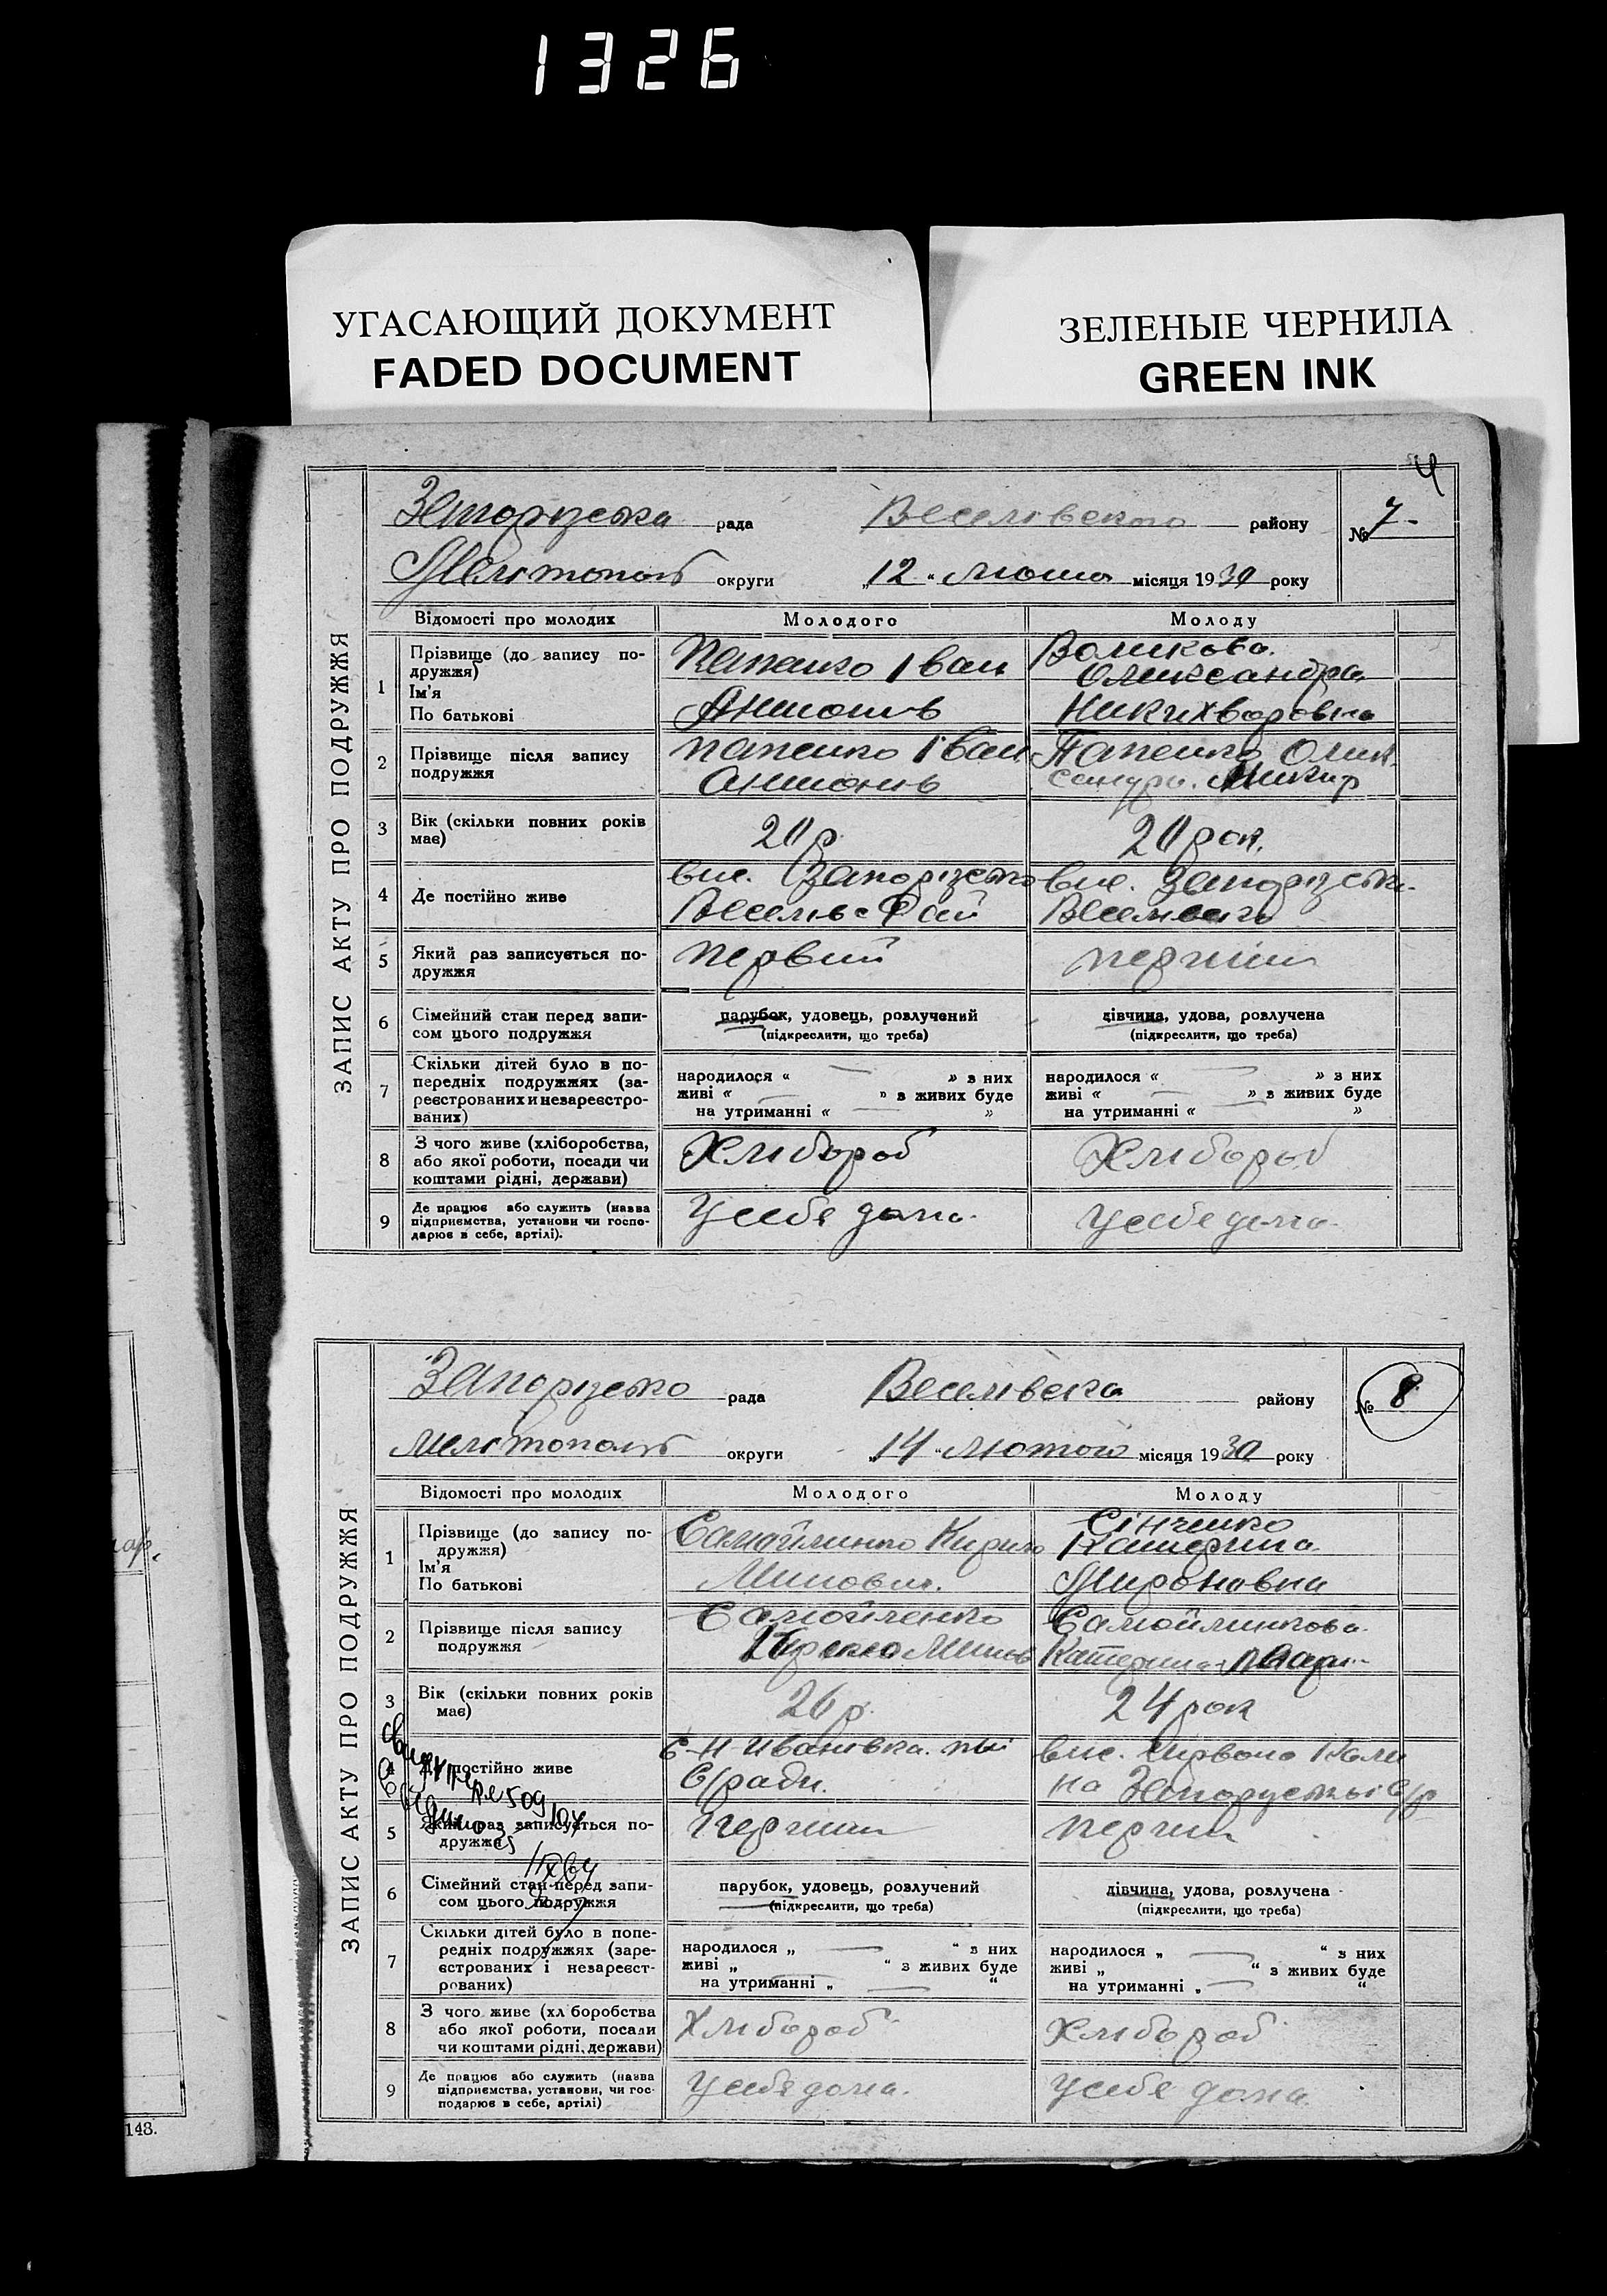 1326
УГАСАЮЩИЙ ДОКУМЕНТ
FADED DOCUMENT
ЗЕЛЕНЫЕ ЧЕРНИЛА
GREEN INK
4
ЗАПИС АКТУ ПРО ПОДРУЖЖЯ
Запорізська рада Веселівского району № 7-
Мелітопол округи „12“ люта місяця 1930 року
Відомості про молодих Молодого Молоду
1 Прізвище (до запису подружжя) Ім'я По батькові
Папенко Іван
Антонів
Воликова
Олександра
Никихворовна
2 Прізвище після запису подружжя
Папенко Іван
Антонів
Папенко Олик
сандра. Никир
3 Вік (скільки повних років має) 20 р. 20 рок.
4 Де постійно живе
вис. Запорізько
Веселівс Рай
вис. Запорізськ.
Веселівсько
5 Який раз записується подружжя
первий
перший
6 Сімейний стан перед записом цього подружжя
парубок, удовець, розлучений
(підкреслити, що треба)
дівчина, удова, розлучена
(підкреслити, що треба)
7 Скільки дітей було в попередніх подружжях (зареєстрованих и незареєстрованих)
народилося « — » з них
живі « — » з живих буде
на утриманні « — »
народилося « — » з них
живі « — » з живих буде
на утриманні « — »
8 З чого живе (хліборобства, або якої роботи, посади чи коштами рідні, держави)
Хлібороб
Хлібороб
9 Де працює або служить (назва підприємства, установи чи господарює в себе, артілі).
У себе дома.
У себе дома.
ЗАПИС АКТУ ПРО ПОДРУЖЖЯ
Запорізько рада Веселівска району № 8
Мелітопол округи „14“ лютого місяця 1930 року
Відомості про молодих Молодого Молоду
1 Прізвище (до запису подружжя) Ім'я По батькові
Самойлинко Кирило
Минович.
Сінченко
Катерина
Мироновна
2 Прізвище після запису подружжя
Самойленко
Кирило Минов
Самойлинкова
Катерина Мир
3 Вік (скільки повних років має) 26 р. 24 рок
4 Де постійно живе
С-Н-Ивановка
С/ради.
вис. Червона Кали
на Запорізської с/р
5 Який раз записується подружжя
перший
перший
6 Сімейний стан перед записом цього подружжя
парубок, удовець, розлучений
(підкреслити, що треба)
дівчина, удова, розлучена
(підкреслити, що треба)
7 Скільки дітей було в попередніх подружжях (зареєстрованих і незареєстрованих)
народилося „ — “ з них
живі „ “ з живих буде
на утриманні „ — “
народилося „ — “ з них
живі „ “ з живих буде
на утриманні „ — “
8 З чого живе (хл боробства або якої роботи, посади чи коштами рідні, держави)
Хлібороб
Хлібороб
9 Де працює або служить (назва підприємства, установи, чи господарює в себе, артілі)
У себе дома.
У себе дома.
148.